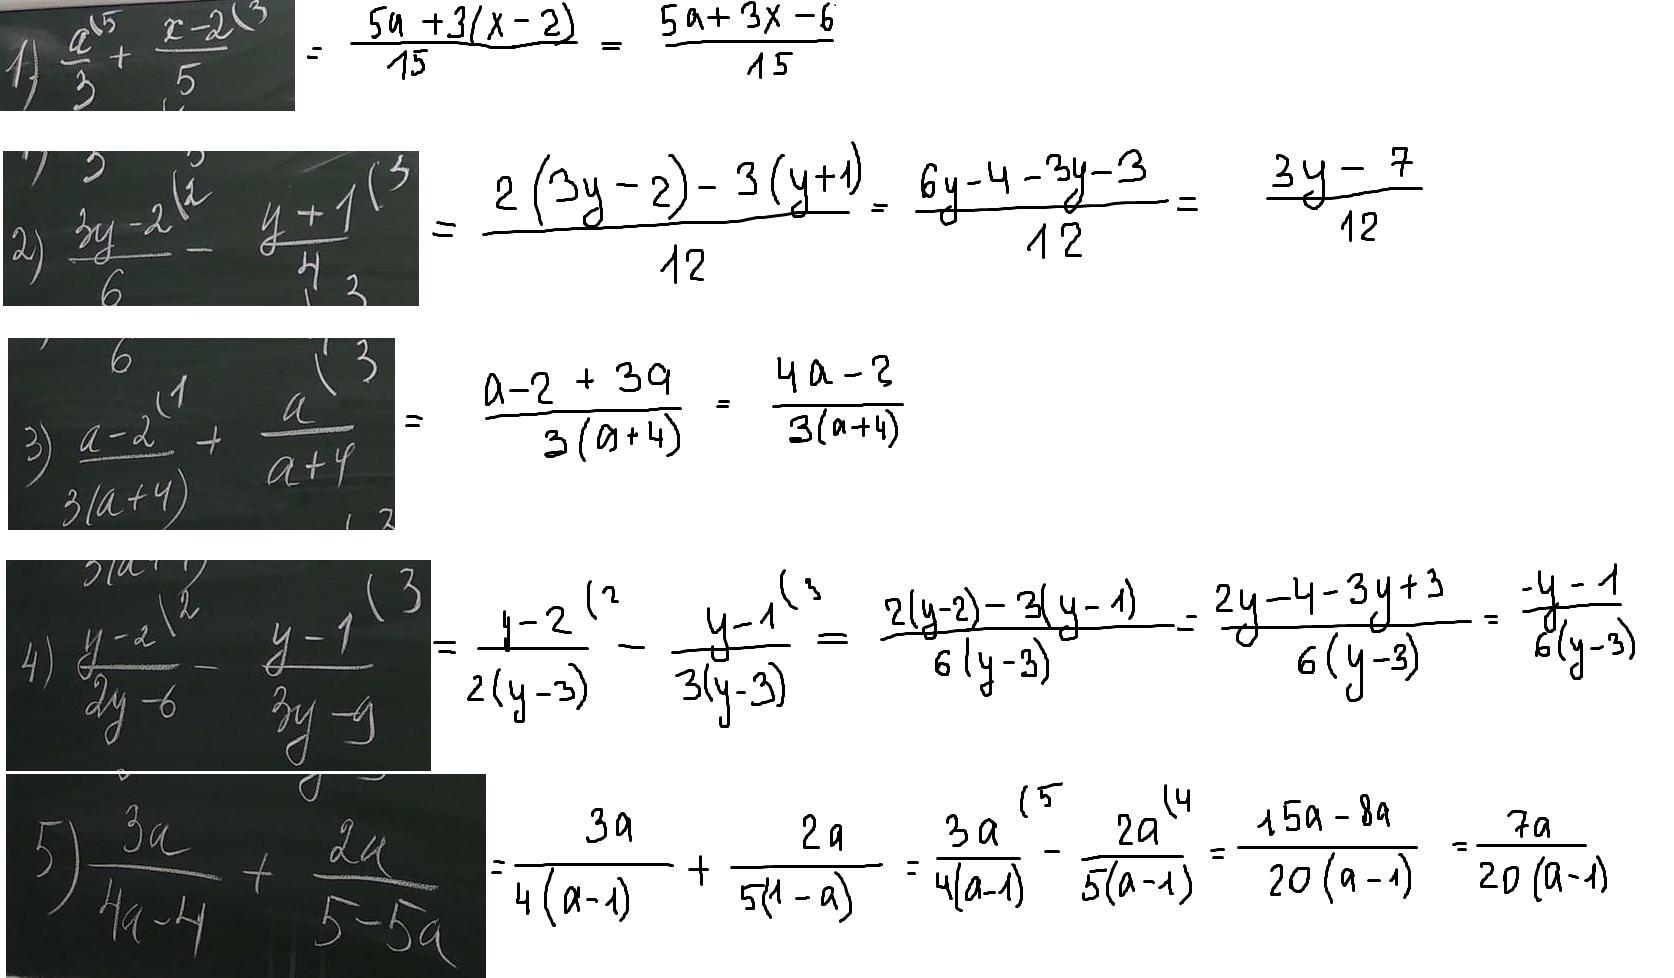 1) a/3 (5 + (x-2)/5 (3 = (5a+3(x-2))/15 = (5a+3x-6)/15
2) (3y-2)/6 (2 - (y+1)/4 (3 = (2(3y-2)-3(y+1))/12 = (6y-4-3y-3)/12 = (3y-7)/12
3) (a-2)/(3(a+4)) (1 + a/(a+4) (3 = (a-2+3a)/(3(a+4)) = (4a-2)/(3(a+4))
4) (y-2)/(2y-6) (2 - (y-1)/(3y-9) (3 = (y-2)/(2(y-3)) (2 - (y-1)/(3(y-3)) (3 = (2(y-2)-3(y-1))/(6(y-3)) = (2y-4-3y+3)/(6(y-3)) = (-y-1)/(6(y-3))
5) 3a/(4a-4) + 2a/(5-5a) = 3a/(4(a-1)) + 2a/(5(1-a)) = 3a/(4(a-1)) (5 - 2a/(5(a-1)) (4 = (15a-8a)/(20(a-1)) = 7a/(20(a-1))